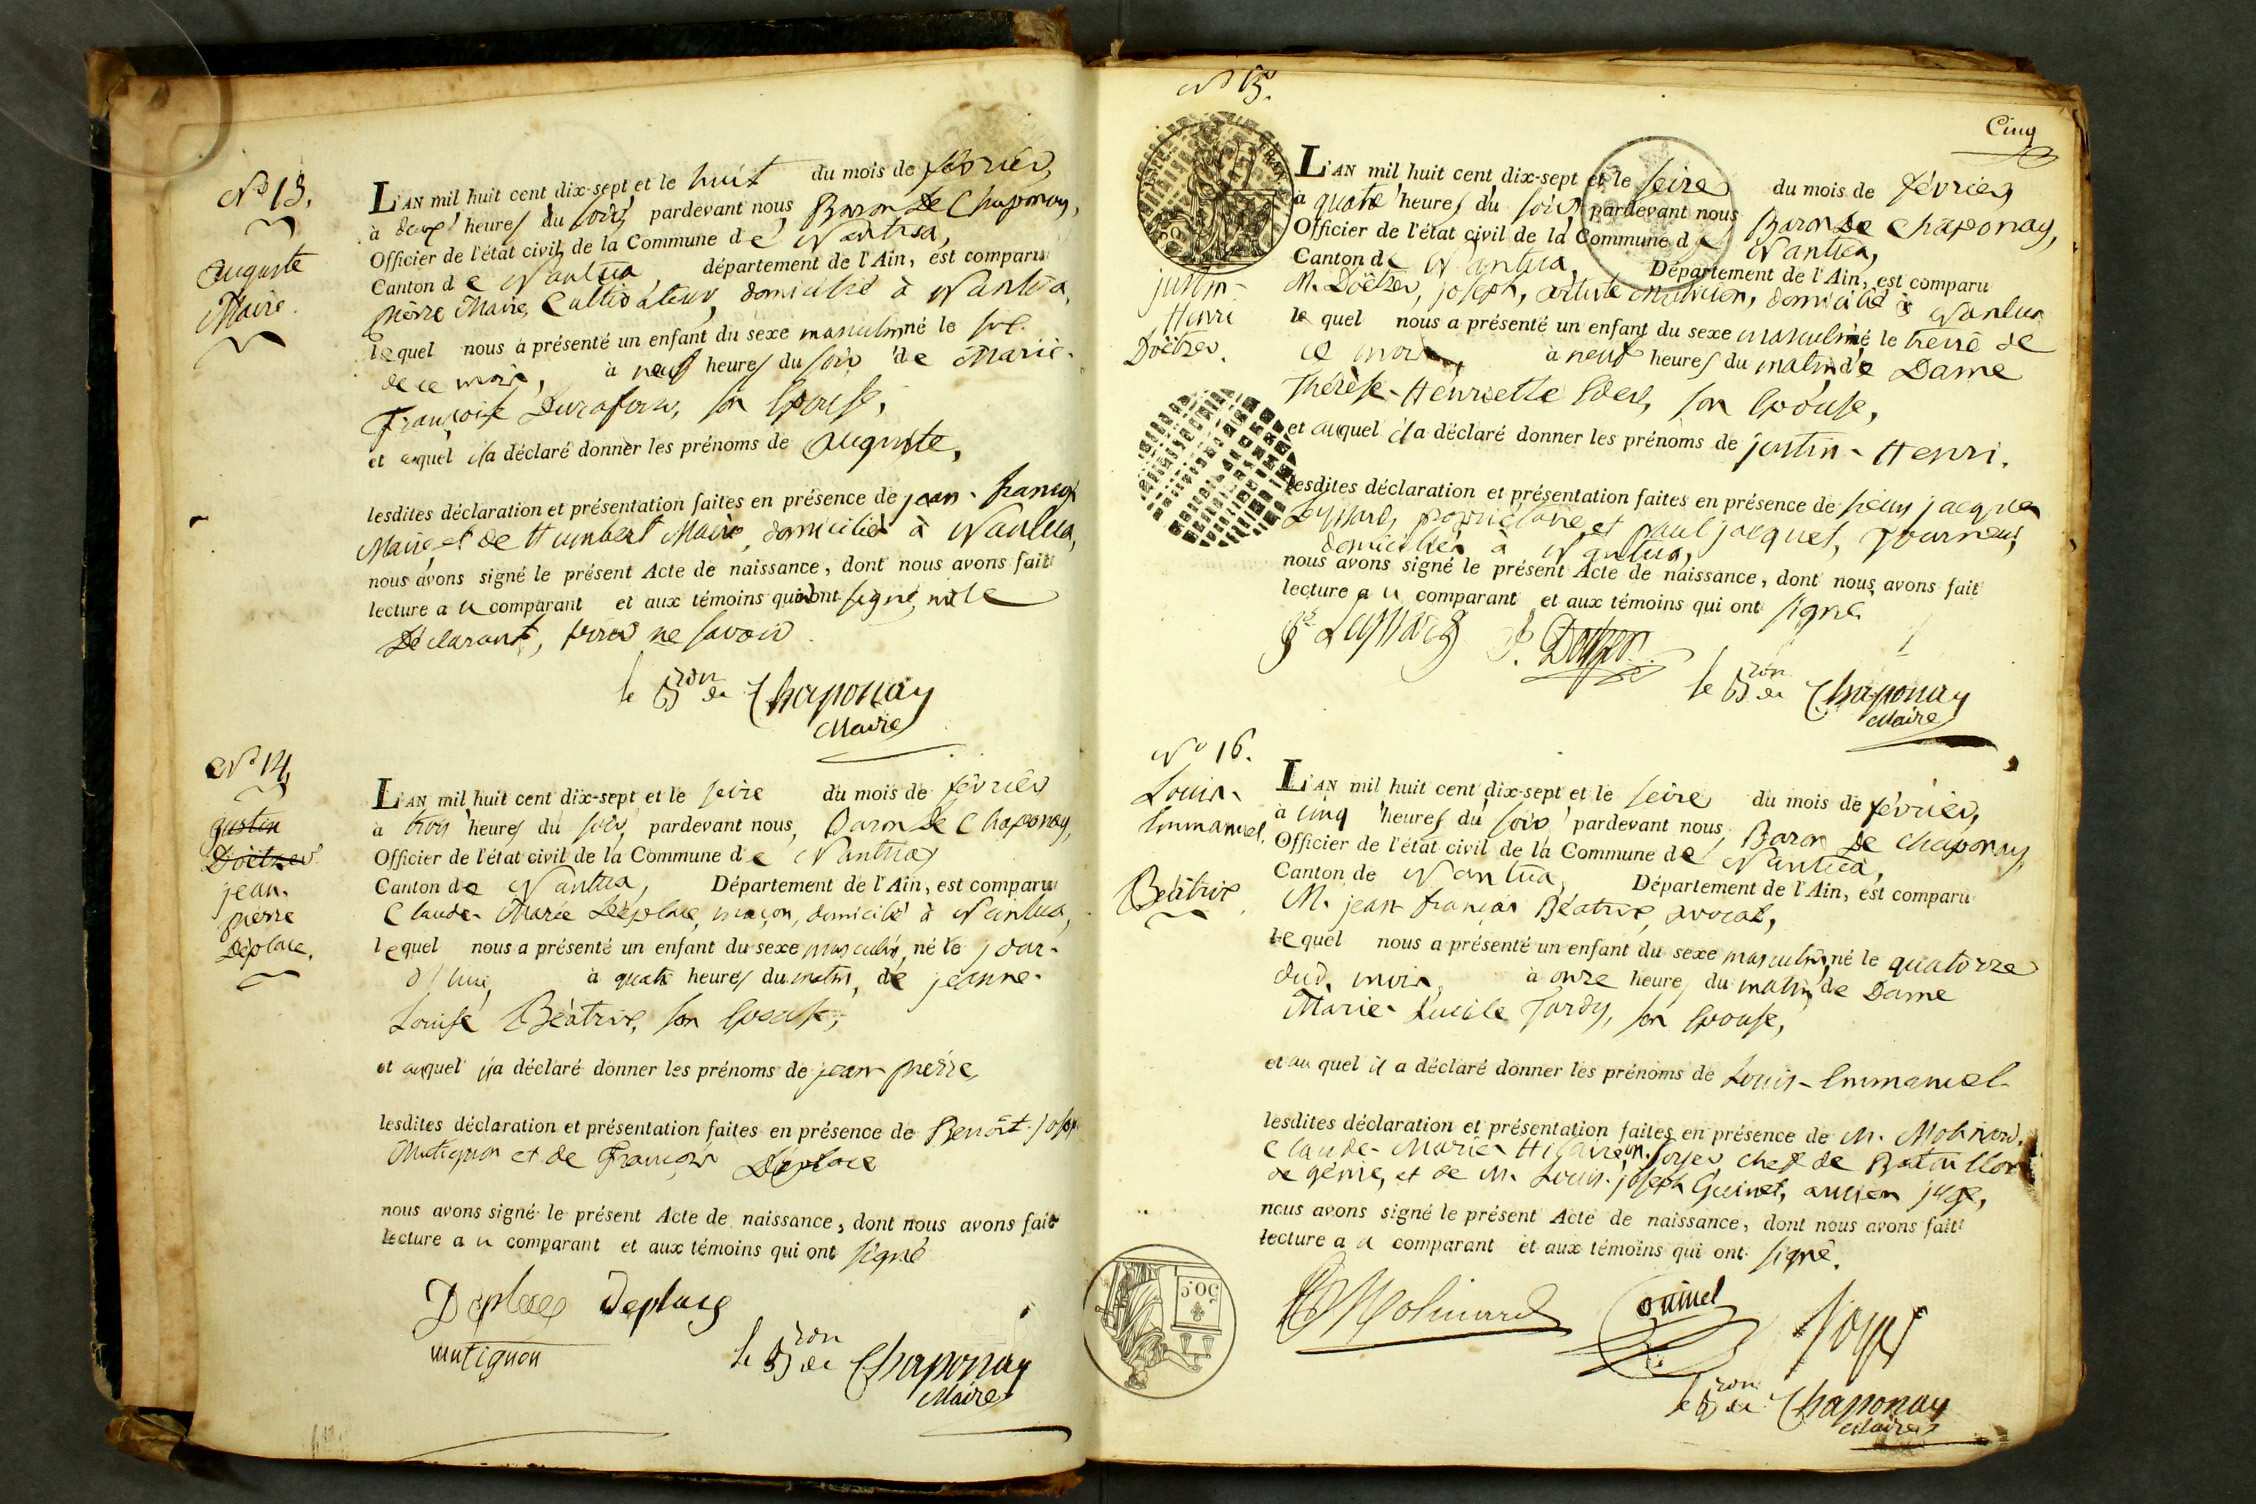 N.o 13.
Auguste
Maire.
L'AN mil huit cent dix-sept et le huit du mois de février,
à deux heures du soir, pardevant nous, Baron De Chaponay,
Officier de l'état civil de la Commune de Nantua,
Canton de Nantua département de l'Ain, est comparu
pierre Maire, Cultivateur, domicilié à Nantua,
lequel nous a présenté un enfant du sexe masculin né le six
de ce mois, à neuf heures du soir de Marie-
Françoise Durafour, son Epouse,
et auquel il a déclaré donner les prénoms de auguste,
lesdites déclaration et présentation faites en présence de jean-françois
Maire, et de Humbert Maire, domiciliés à Nantua,
nous avons signé le présent Acte de naissance, dont nous avons fait
lecture au comparant et aux témoins qui ont signé, ni le
Déclarant, pour ne savoir.
le Bron de Chaponay
Maire
N.o 14.
justin
Doëtzer
jean-
pierre
Déplace.
L'AN mil huit cent dix-sept et le seize du mois de février
à trois heures du soir, pardevant nous, Baron de Chaponay,
Officier de l'état civil de la Commune de Nantua,
Canton de Nantua, Département de l'Ain, est comparu
Claude-Marie Déplace, maçon, domicilié à Nantua,
lequel nous a présenté un enfant du sexe masculin, né le jour-
d'hui, à quatre heures du matin, de jeanne-
Louise Béatrix, son Epouse,
et auquel il a déclaré donner les prénoms de jean-pierre,
lesdites déclaration et présentation faites en présence de Benoît-joseph
Mutignon et de François Déplace
nous avons signé le présent Acte de naissance, dont nous avons fait
lecture au comparant et aux témoins qui ont signé
Deplace Deplace
mutignon
le Bron de Chaponay
Maire
N.o 15.
Cinq
justin-
Henri
Doëtzer.
L'AN mil huit cent dix-sept et le seize du mois de février,
à quatre heures du soir, pardevant nous, Baron De Chaponay,
Officier de l'état civil de la Commune de Nantua,
Canton de Nantua, Département de l'Ain, est comparu
M. Doëtzer, joseph, artiste Musicien, domicilié à Nantua
lequel nous a présenté un enfant du sexe masculin né le treize de
ce mois, à neuf heures du matin, de Dame
Thérèse-Henriette son Epouse,
et auquel il a déclaré donner les prénoms de justin-Henri.
lesdites déclaration et présentation faites en présence de sieurs jacques
propriétaire, et paul jacquet, Tourneur,
domiciliés à Nantua,
nous avons signé le présent Acte de naissance, dont nous avons fait
lecture au comparant et aux témoins qui ont signé
le Bron de Chaponay
Maire
N.o 16.
Louis-
Emmanuel
Béatrix
L'AN mil huit cent dix-sept et le seize du mois de février,
à cinq heures du soir pardevant nous, Baron de Chaponay,
Officier de l'état civil de la Commune de Nantua,
Canton de Nantua, Département de l'Ain, est comparu
M. jean-françois Béatrix, avocat,
lequel nous a présenté un enfant du sexe masculin, né le quatorze
dud. mois, à onze heures du matin, de Dame
Marie-Lucile Tardy, son Epouse,
et auquel il a déclaré donner les prénoms de Louis-Emmanuel
lesdites déclaration et présentation faites en présence de M. Molinard,
Claude-Marie-Hilaire, M. Soyer chef de Bataillon
de génie, et de M. Louis-joseph Guinet, ancien juge,
nous avons signé le présent Acte de naissance, dont nous avons fait
lecture au comparant et aux témoins qui ont signé.
Molinard Guinet Soyer
le Bron de Chaponay
Maire
50 C